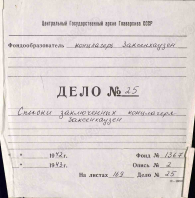 Центральный Государственный архив Госархива СССР
Фондообразователь концлагерь Заксенхаузен
ДЕЛО № 25
Списки заключенных концлагеря
Заксенхаузен
1942 г.
1943 г.
Фонд № 1367
Опись № 2
На листах 169
Дело № 25